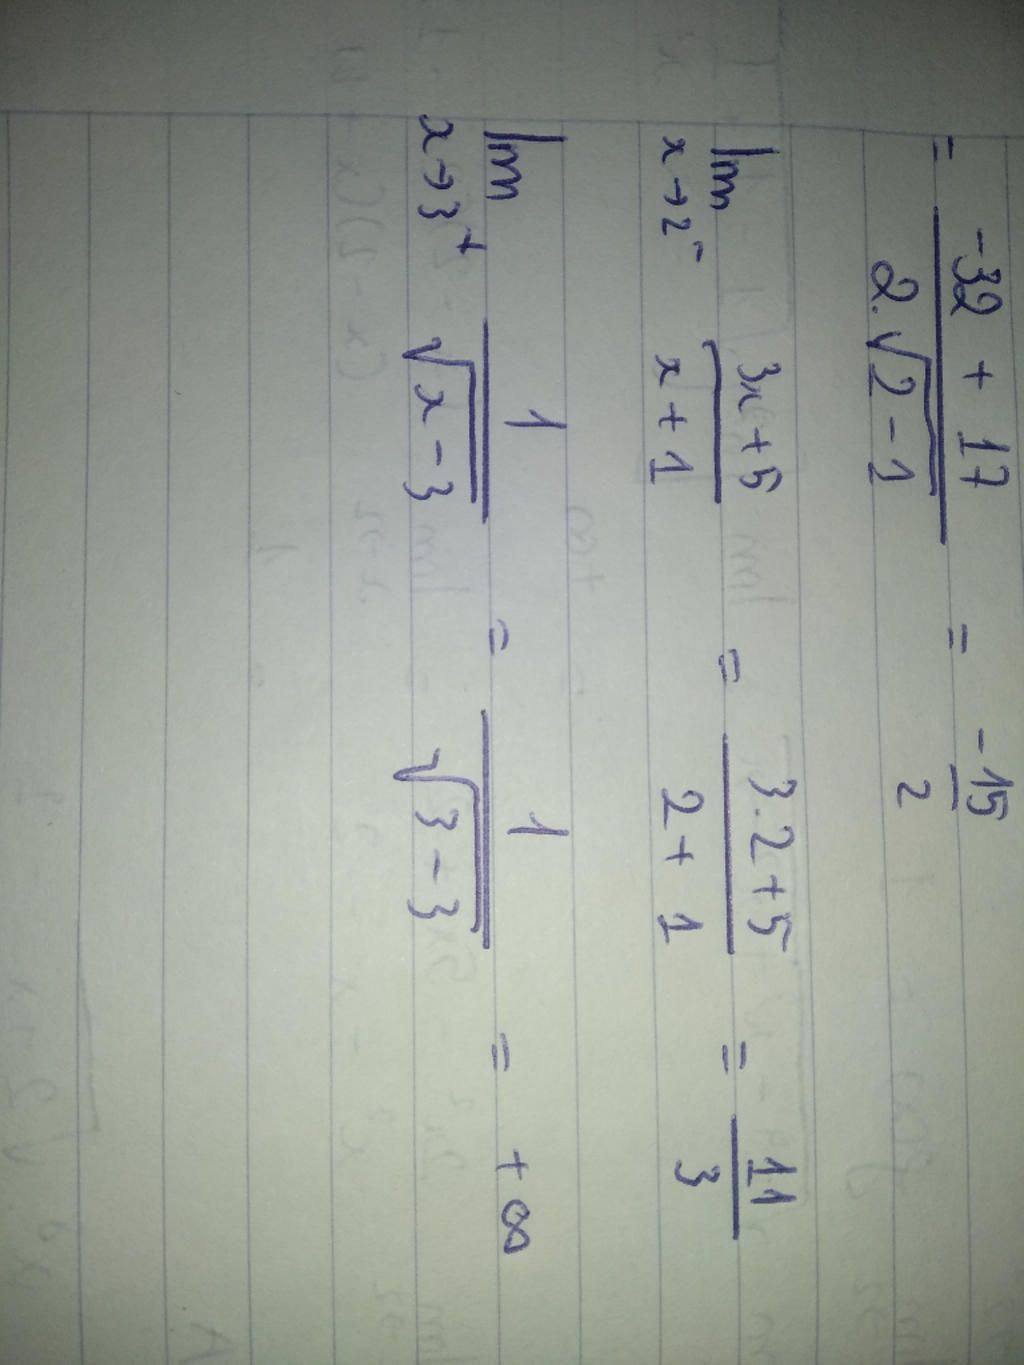 = (-32 + 17)/(2.√(2-1)) = -15/2
lim x→2⁻ (3x+5)/(x+1) = (3.2+5)/(2+1) = 11/3
lim x→3⁺ 1/√(x-3) = 1/√(3-3) = +∞